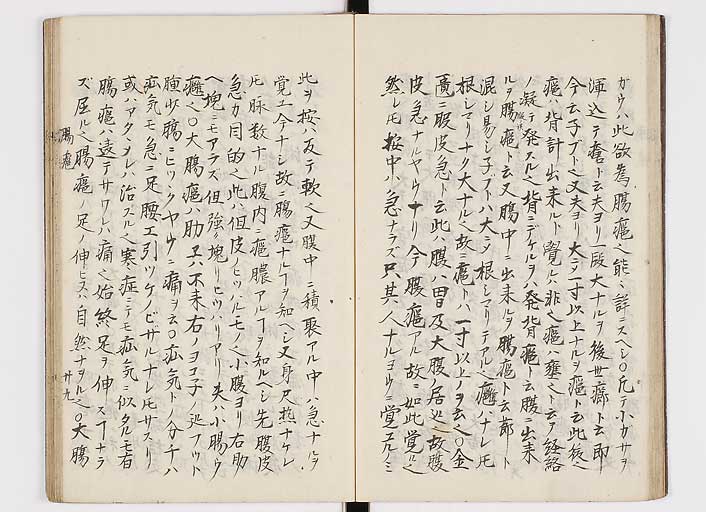 ガウハ此欲為腸癰之能ニ詳ニスヘシ〇凡テ小カサヲ
渾込テ瘡ト云夫ヨリ一段大ナルヲ後世癤ト云即
今云子ブト之又夫ヨリ大ニテ一寸以上ナルヲ癰ト云此後之
癰ハ背計出来ルト覚ルハ非之癰ハ壅之ト云ヲ経絡
ノ凝テ発スル之背ニデケルヲハ発背癰ト云腹ニ出来
ルヲ腸癰ト云又腸中ニ出来ルヲ腸癰ト云節ト
混シ易シ子ブトハ大ニシ根シマリテアル之癰ハナレ𪜈
根シマリナク大ナル之故ニ癰トハ一寸以上ノヲ云之〇金
匱ニ腹皮急ト云此ハ腹ハ胃及大腹居之故腹
皮急ナルヤウナリ今腹癰アル故ニ如此覚ル之
然レ𪜈按中ハ急ナラズ只其人ナルヨウニ覚ユルノミ
此ヲ按ハ反テ軟之又腹中ニ積聚アル中ハ急ナルヲ
覚エ今ナシ故ニ腸癰ナルヿヲ知ヘシ又身尺熱ナケレ
𪜈脉数ナル腹内ニ癰膿アルヿヲ知ルヘシ先腹皮
急カ目的之此ハ但皮ノヒツハルモノ之小腹ヨリ右肋
ヘ塊ニモアラズ但強ク塊リヒツハリアリ夫ハ小腸ヵ
癰之〇大腸癰ハ肋ヱハ不来右ノヨコ子ノ辺フツト
腫少腸ニヒツヽクヤウニ痛ヲ云〇疝気トノ分チハ
疝気モ急ニ足腰エ引ツケノビザルナレ𪜈サスリ
或ハアタヽメレハ治スル之寒疝ニテモ疝気ニ似タレモ右
腸癰ハ遠テサワレハ痛之始終足ヲ伸スヿナラ
ズ屈ル之腸癰ノ足ノ伸ヒスハ自然ナヲル之〇大腸
腸癰
廿九